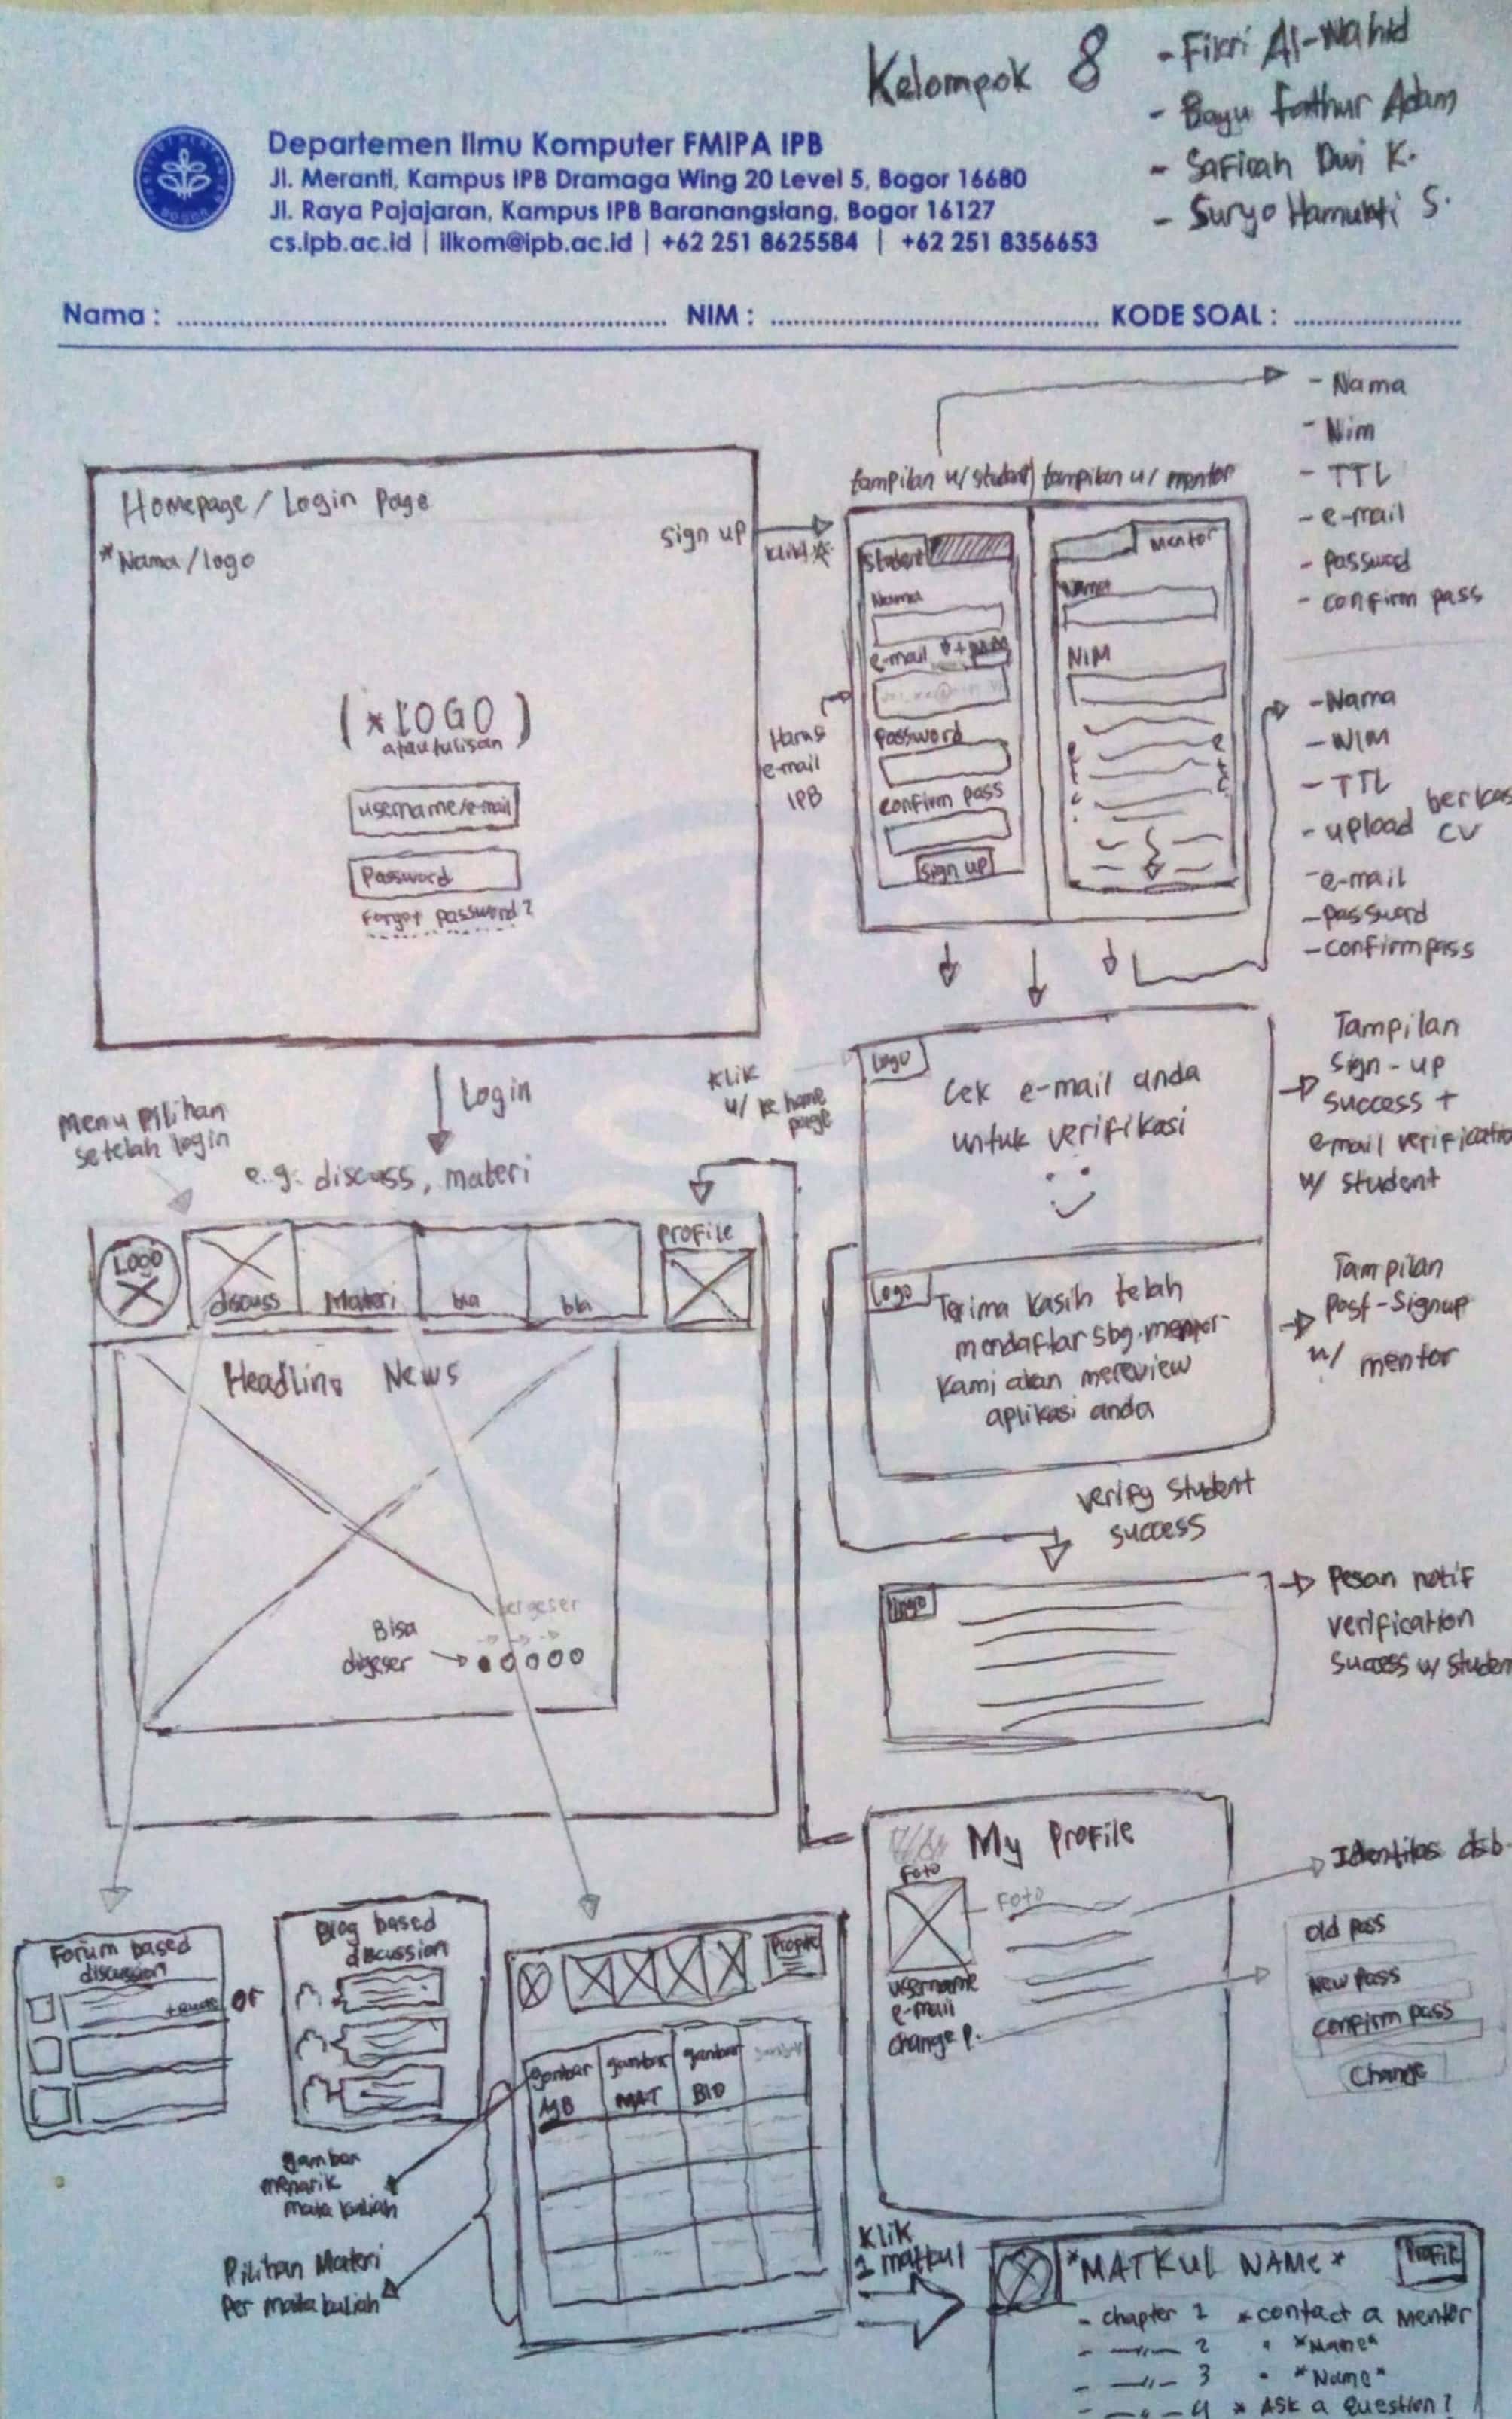 Kelompok 8
- Fikri Al-Wahid
- Bayu Fathur Adam
- Safirah Dwi K.
- Suryo Hamukti S.
Departemen Ilmu Komputer FMIPA IPB
Jl. Meranti, Kampus IPB Dramaga Wing 20 Level 5, Bogor 16680
Jl. Raya Pajajaran, Kampus IPB Baranangsiang, Bogor 16127
cs.ipb.ac.id | ilkom@ipb.ac.id | +62 251 8625584 | +62 251 8356653
Nama : NIM : KODE SOAL :
Homepage / Login Page
*Nama/logo
sign up
(*LOGO)
atau tulisan
username/e-mail
Password
Forgot password?
klik
tampilan u/ student
tampilan u/ mentor
Student
Nama
e-mail
Password
confirm pass
sign up
Harus
e-mail
IPB
Mentor
Nama
NIM
- Nama
- Nim
- TTL
- e-mail
- Password
- confirm pass
- Nama
- NIM
- TTL
- upload berkas
CV
- e-mail
- password
- confirm pass
Login
Menu Pilihan
setelah login
e.g. discuss, materi
klik
u/ ke home
page
Logo
Cek e-mail anda
untuk verifikasi
Tampilan
Sign-up
success +
email verification
w/ student
Logo
Terima kasih telah
mendaftar sbg. mentor
Kami akan mereview
aplikasi anda
Tampilan
Post-Signup
u/ mentor
Logo
discuss
Materi
bla
bla
Profile
Headline News
Bisa
digeser
bergeser
verify student
success
Logo
Pesan notif
verification
success w/ student
My Profile
Foto
Foto
username
e-mail
change p.
Identitas dsb.
Old pass
New pass
confirm pass
Change
Forum based
discussion
or
Blog based
discussion
Profile
gambar
gambar
gambar
gambar
MAT
BIO
gambar
menarik
mata kuliah
Pilihan Materi
Per mata kuliah
klik
1 matkul
*MATKUL NAME*
Profile
- chapter 1
- —"— 2
- —"— 3
- —"— 4
* contact a Mentor
• *Name*
• *Name*
* Ask a Question?